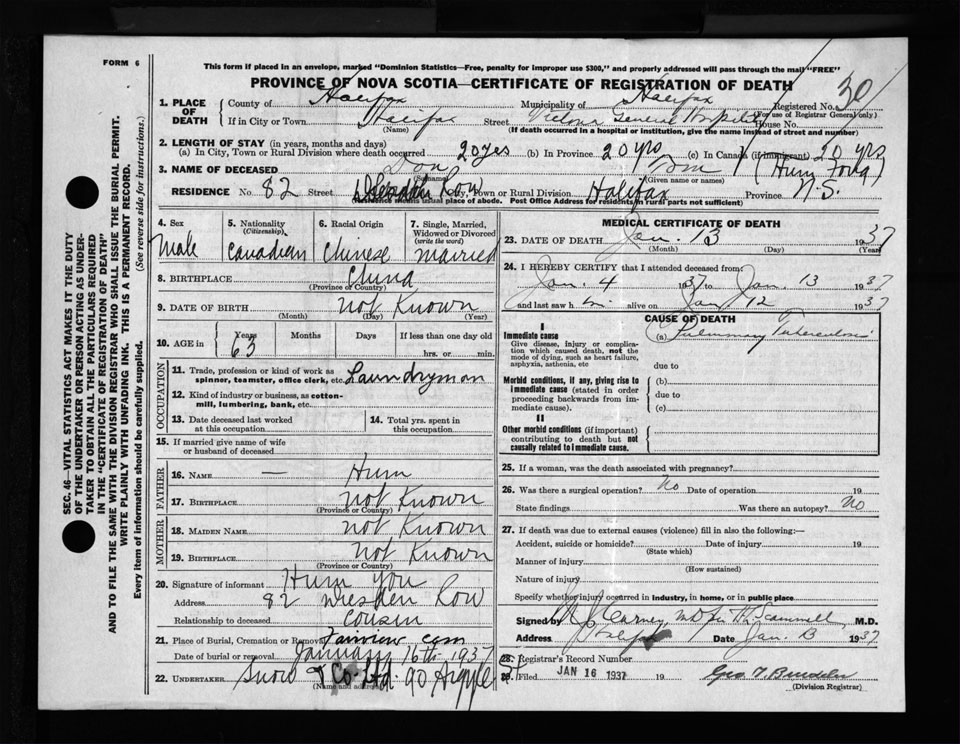 FORM 6
This form if placed in an envelope, marked "Dominion Statistics—Free, penalty for improper use $300," and properly addressed will pass through the mail "FREE"
PROVINCE OF NOVA SCOTIA—CERTIFICATE OF REGISTRATION OF DEATH
1. PLACE OF DEATH
County of Halifax Municipality of Halifax Registered No. 30
(For use of Registrar General only)
If in City or Town Halifax Street Victoria General Hospital House No.
(Name) (If death occurred in a hospital or institution, give the name instead of street and number)
2. LENGTH OF STAY (in years, months and days)
(a) In City, Town or Rural Division where death occurred 20 yes (b) In Province 20 yrs (c) In Canada (if immigrant) 20 yrs
3. NAME OF DECEASED Don Tom (Hum Fong)
(Surname) (Given name or names)
RESIDENCE No. 82 Street Row City, Town or Rural Division Halifax Province N.S.
Residence means usual place of abode. Post Office Address for residents in rural parts not sufficient)
4. Sex
Male
5. Nationality (Citizenship)
Canadian
6. Racial Origin
Chinese
7. Single, Married, Widowed or Divorced (write the word)
Married
8. BIRTHPLACE China
(Province or Country)
9. DATE OF BIRTH not Known
(Month) (Day) (Year)
10. AGE in Years Months Days If less than one day old
63 hrs. or min.
OCCUPATION
11. Trade, profession or kind of work as spinner, teamster, office clerk, etc. Laundryman
12. Kind of industry or business, as cotton-mill, lumbering, bank, etc.
13. Date deceased last worked at this occupation
14. Total yrs. spent in this occupation
15. If married give name of wife or husband of deceased
FATHER
16. NAME — Hum
17. BIRTHPLACE not Known
(Province or Country)
MOTHER
18. MAIDEN NAME not Known
19. BIRTHPLACE not Known
(Province or Country)
20. Signature of informant Hum You
Address 82 Dresden Row
Relationship to deceased cousin
21. Place of Burial, Cremation or Removal Fairview Cem
Date of burial or removal January 16th 1937
22. UNDERTAKER Snow & Co Ltd. 90 Argyle St
(Name and address)
MEDICAL CERTIFICATE OF DEATH
23. DATE OF DEATH Jan. 13 1937
(Month) (Day) (Year)
24. I HEREBY CERTIFY that I attended deceased from
Jan. 4 1937 to Jan. 13 1937
and last saw h im alive on Jan 12 1937
CAUSE OF DEATH
I
Immediate cause
Give disease, injury or complication which caused death, not the mode of dying, such as heart failure, asphyxia, asthenia, etc
(a) Pulmonary Tuberculosis
due to
Morbid conditions, if any, giving rise to immediate cause (stated in order proceeding backwards from immediate cause).
(b)
due to
(c)
II
Other morbid conditions (if important) contributing to death but not causally related to immediate cause.
25. If a woman, was the death associated with pregnancy?
26. Was there a surgical operation? No Date of operation 19
State findings Was there an autopsy? No
27. If death was due to external causes (violence) fill in also the following:—
Accident, suicide or homicide? Date of injury 19
(State which)
Manner of injury
(How sustained)
Nature of injury
Specify whether injury occurred in industry, in home, or in public place
Signed by Carney, M.D.
Address Halifax Date Jan. 13 1937
28. Registrar's Record Number
29. Filed JAN 16 1937 19
(Division Registrar)
SEC. 46—VITAL STATISTICS ACT MAKES IT THE DUTY
OF THE UNDERTAKER OR PERSON ACTING AS UNDERTAKER TO OBTAIN ALL THE PARTICULARS REQUIRED
IN THE "CERTIFICATE OF REGISTRATION OF DEATH"
AND TO FILE THE SAME WITH THE DIVISION REGISTRAR WHO SHALL ISSUE THE BURIAL PERMIT.
WRITE PLAINLY WITH UNFADING INK. THIS IS A PERMANENT RECORD.
Every item of information should be carefully supplied. (See reverse side for instructions.)